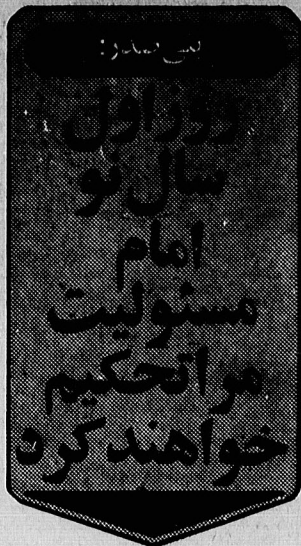 بنی صدر:
روز اول
سال نو
امام
مسئولیت
مرا تحکیم
خواهند کرد